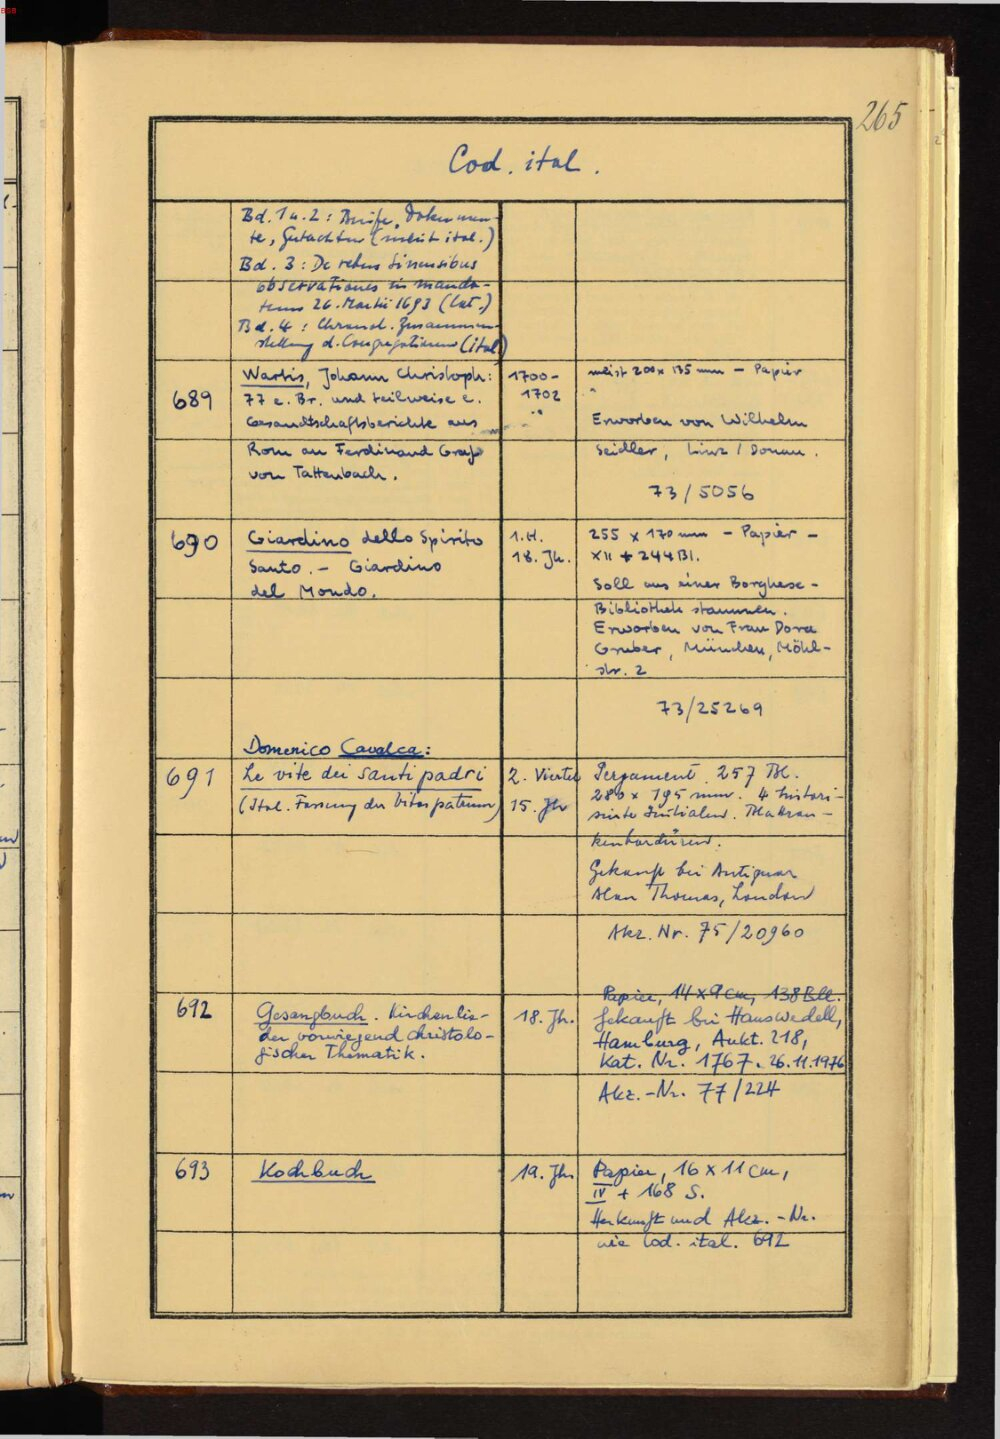 265
Cod. ital.
Bd. 1 u. 2: Briefe, Dokumen-
te, Gutachten (meist ital.)
Bd. 3: De rebus Sinensibus
observationes in manda-
tum 26. Martii 1693 (lat.)
Bd. 4: Chronol. Zusammen-
stellung d. Congregationen (ital.)
689
Johann Christoph:
77 e. Br. und teilweise e.
Gesandtschaftsberichte aus
Rom an Ferdinand Graf
von Tattenbach.
1700-
1702
meist 200 x 135 mm - Papier
Erworben von Wilhelm
Seidler, Linz / Donau.
73/5056
690
Giardino dello Spirito
Santo. - Giardino
del Mondo.
1. H.
18. Jh.
255 x 170 mm - Papier -
XII + 244 Bl.
Soll aus einer Borghese-
Bibliothek stammen.
Erworben von Frau Dora
Gruber, München, Möhl-
str. 2
73/25269
691
Domenico Cavalca:
Le vite dei santi padri
(Ital. Fassung der Vitas patrum)
2. Viertel
15. Jh
Pergament. 257 Bl.
280 x 195 mm. 4 histori-
sierte Initialen. Blakran-
kenbordüren.
Gekauft bei Antiquar
Alan Thomas, London
Akz. Nr. 75/20960
692
Gesangbuch. Kirchenlie-
der vorwiegend christolo-
gischer Thematik.
18. Jh.
Papier, 14 x 9 cm, 138 Bll.
gekauft bei Hauswedell,
Hamburg, Aukt. 218,
Kat. Nr. 1767. 26.11.1976
Akz.-Nr. 77/224
693
Kochbuch
19. Jh.
Papier, 16 x 11 cm,
IV + 168 S.
Herkunft und Akz.-Nr.
wie Cod. ital. 692